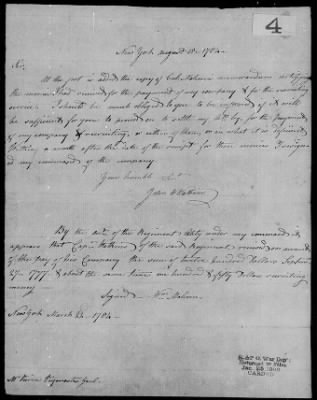 4
New York August 18th 1784
Sir,
At the foot is added the copy of Col. Malcom's memorandum certifying
the monies I had received for the payment of my company & for the recruiting
service. I should be much obliged to you to be informed if it will
be sufficient for you to proceed on to settle my acct. for the payment
of my company & recruiting, or either of them, or on what it is deficient
a month after the date of the receipt for these monies I resigned
my command of the company
Your humble Servt
John
By the acts of the Regiment lately under my command it
appears that Capt. of the said Regiment received on account
of the pay of his Company the sum of twelve hundred Dollars Septem
27 1777 & about the same time one hundred & fifty Dollars recruiting
money
Signed Wm. Malcom
New York March 24 1784
Mr. Pierce Paymaster Genl.
R. & P. O. War Dep't
Jan. 25 1909
CARDED